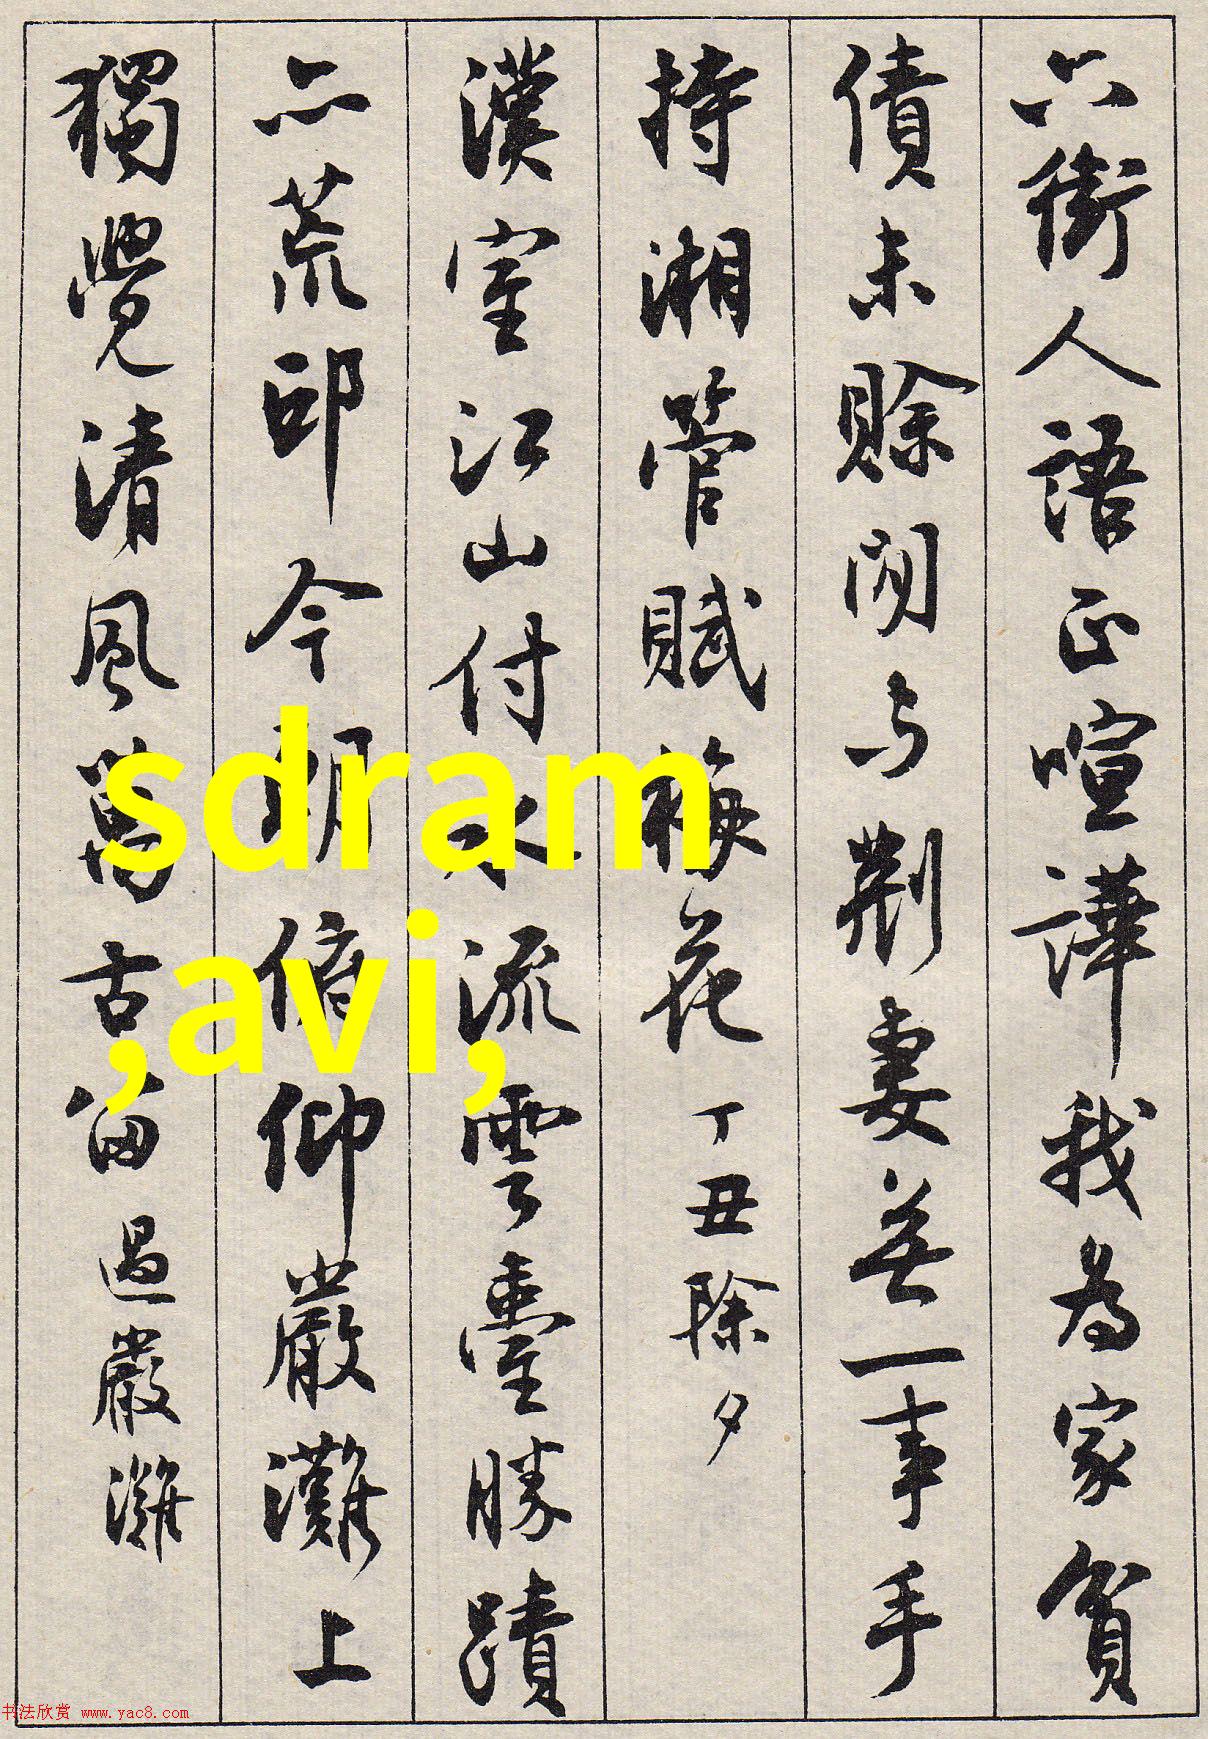 六街人語正喧譁我為家貧
債未賒閒与荆妻無一事手
持湘管賦梅花 丁丑除夕
漢室江山付水流雲臺勝蹟
亦荒邱今朝俯仰嚴灘上
獨覺清風萬古留 過嚴灘
sdram
,avi,
书法欣赏 www.yac8.com